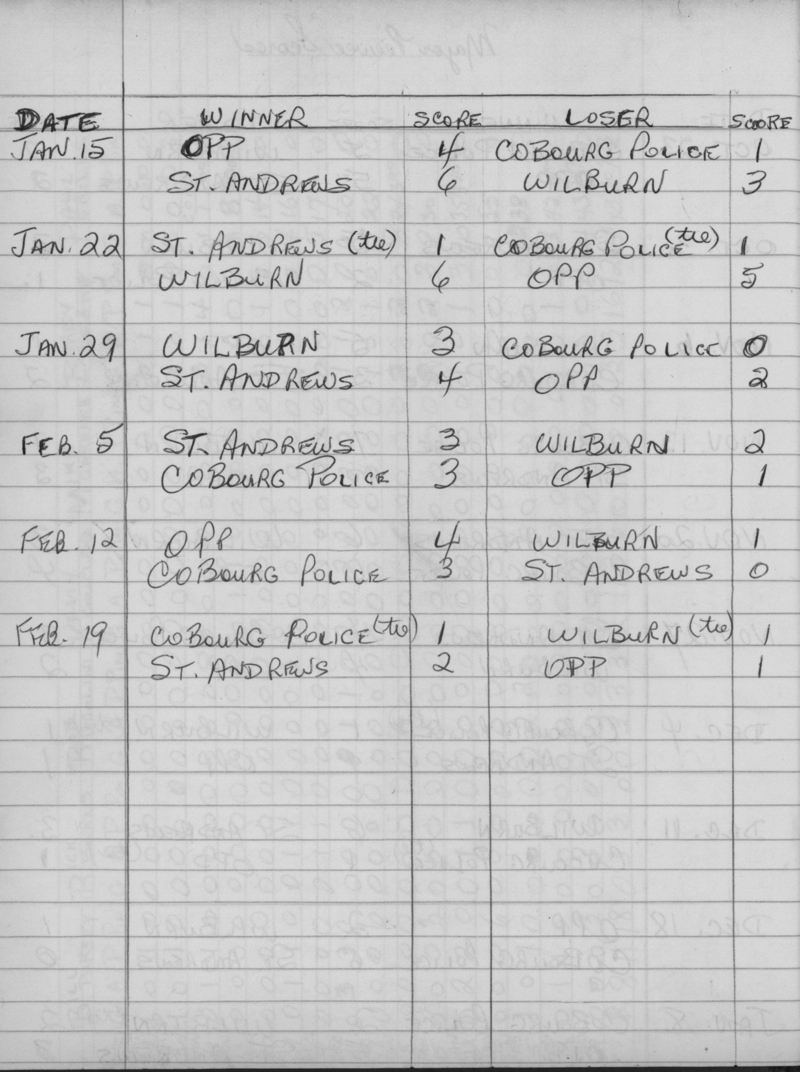 DATE WINNER SCORE LOSER SCORE
JAN. 15 OPP 4 COBOURG POLICE 1
ST. ANDREWS 6 WILBURN 3
JAN. 22 ST. ANDREWS (tie) 1 COBOURG POLICE (tie) 1
WILBURN 6 OPP 5
JAN. 29 WILBURN 3 COBOURG POLICE 0
ST. ANDREWS 4 OPP 2
FEB. 5 ST. ANDREWS 3 WILBURN 2
COBOURG POLICE 3 OPP 1
FEB. 12 OPP 4 WILBURN 1
COBOURG POLICE 3 ST. ANDREWS 0
FEB. 19 COBOURG POLICE (tie) 1 WILBURN (tie) 1
ST. ANDREWS 2 OPP 1